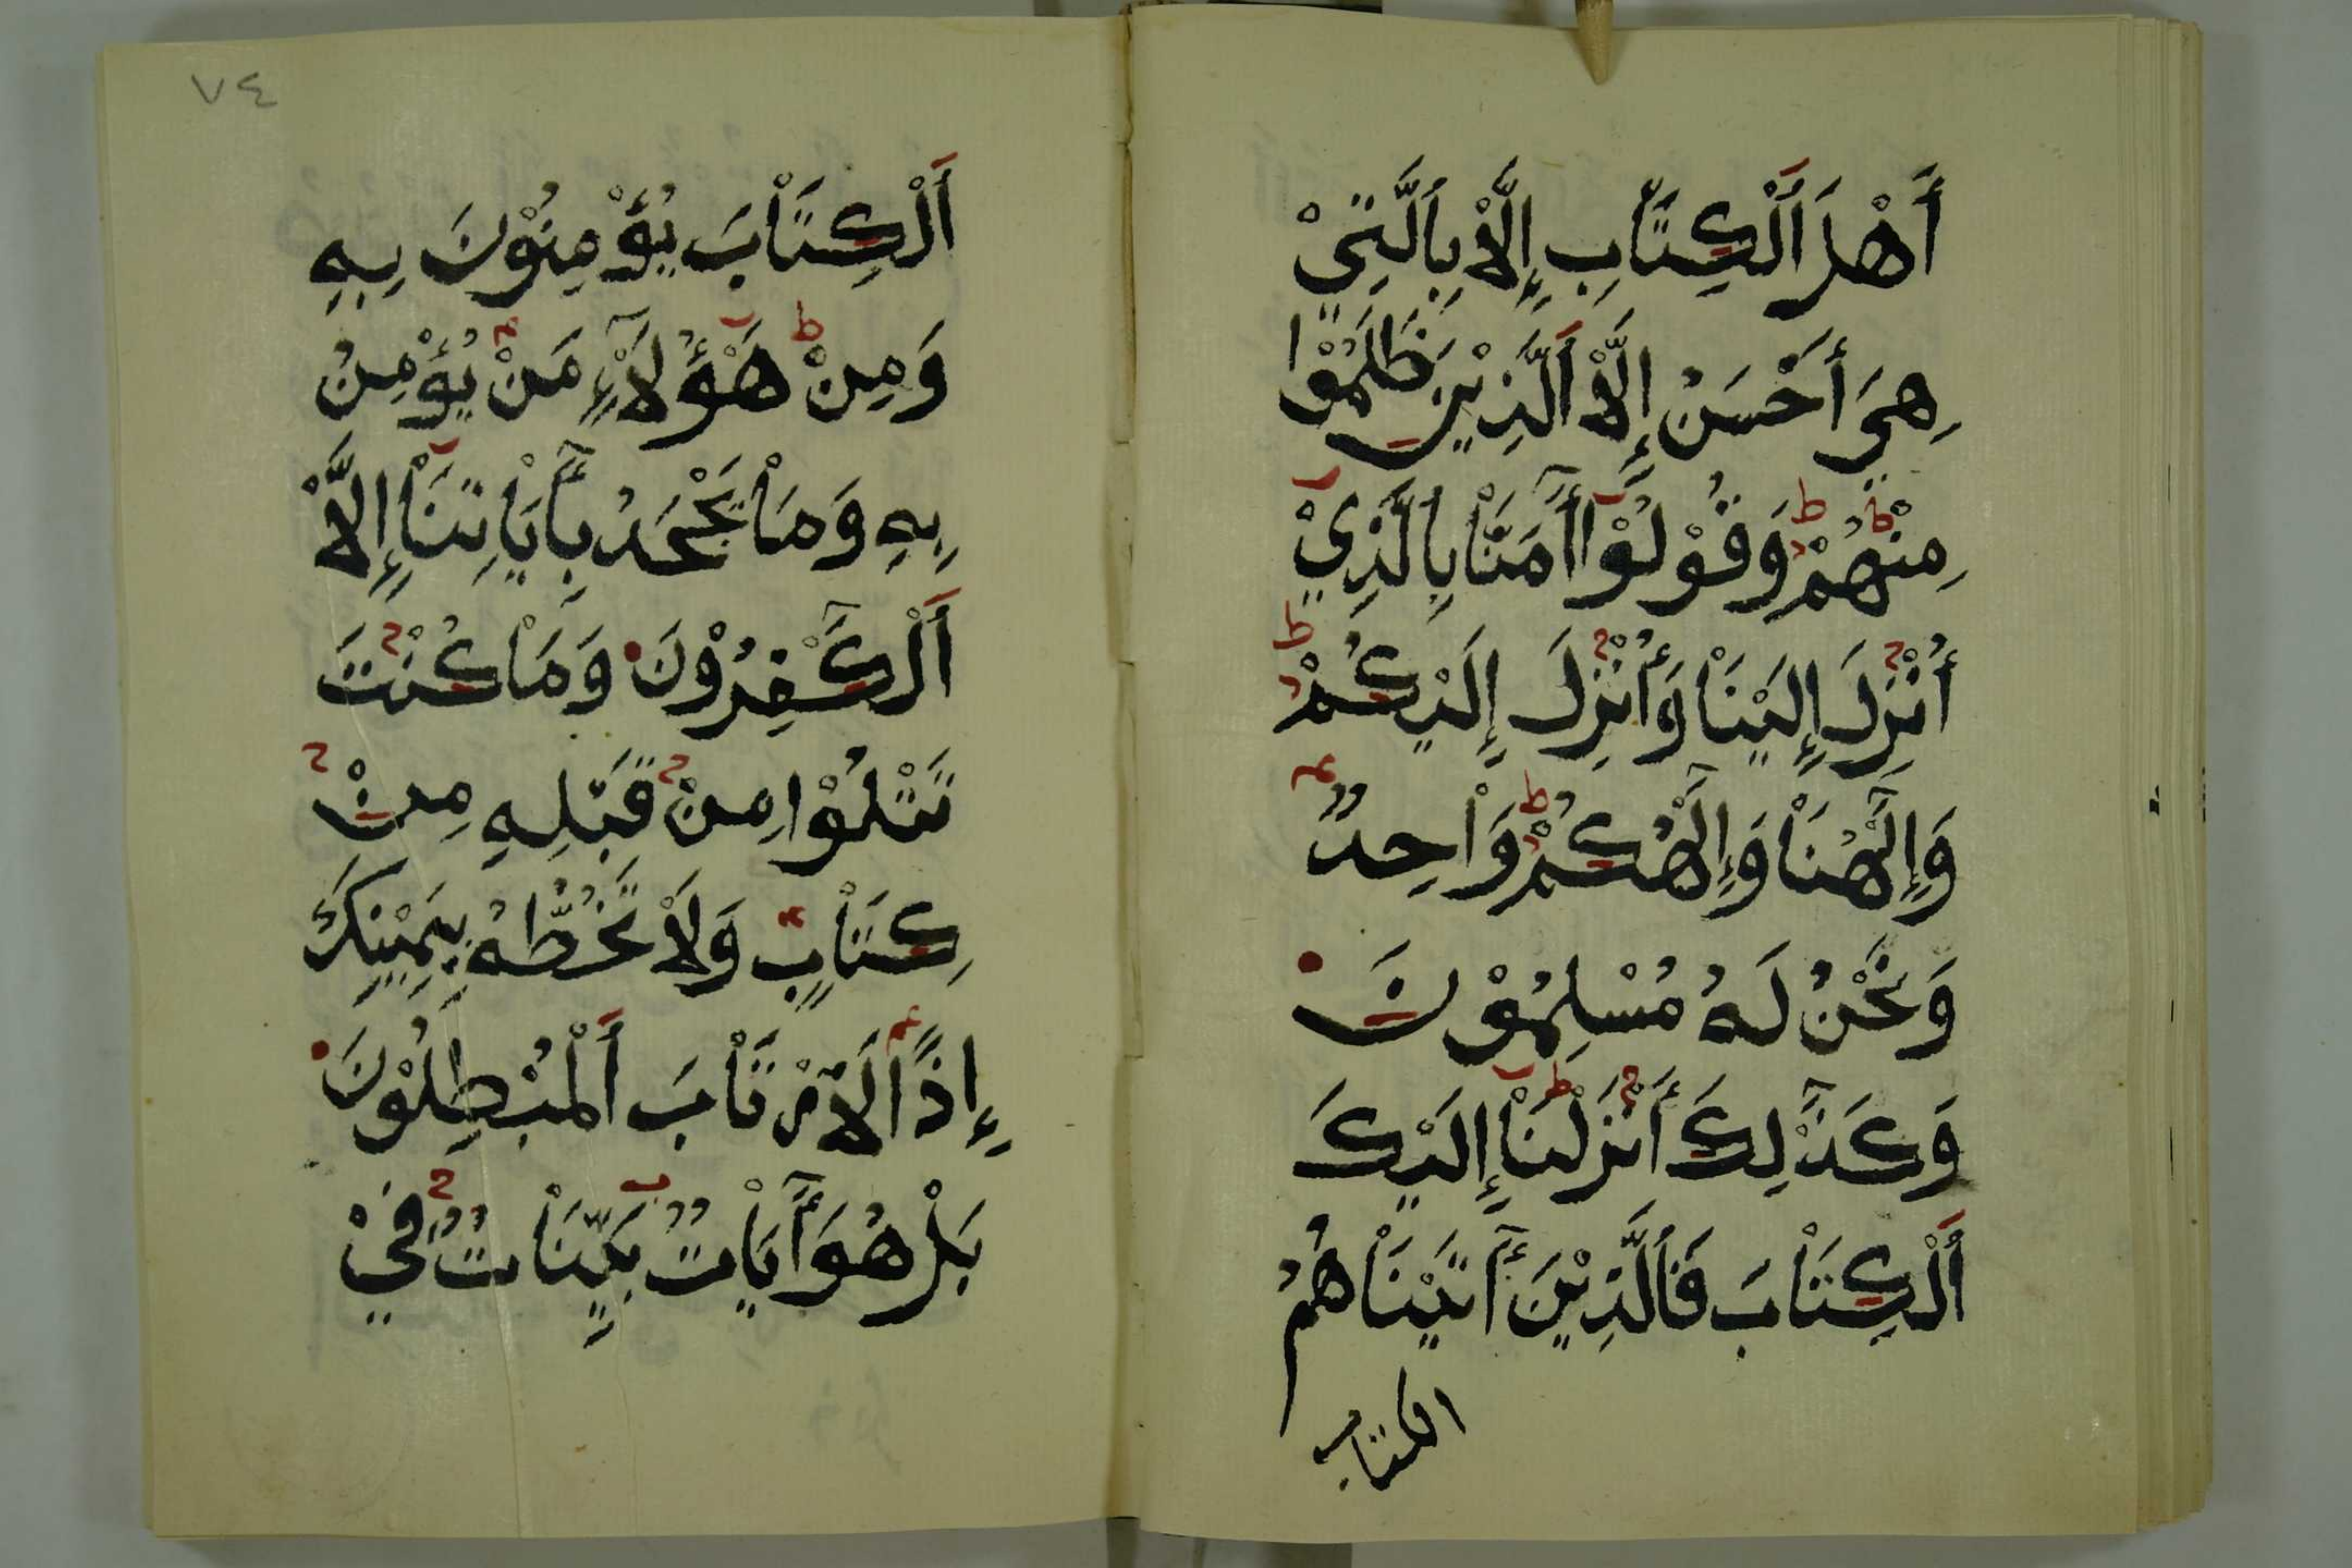 أَهْلَ اَلْكِتَاْبِ إِلَّاْ بِاَلَّتِيْ
هِيَ أَحْسَنُ إِلَّاْ اَلَّذِيْنَ ظَلَمُوْا
مِنْهُمْ وَقُوْلُوْا أٓمَنَّاْ بِالَّذِيْ
أُنْزِلَ إِلَيْنَاْ وَأُنْزِلَ إِلَيْكُمْ
وَإِلَٰهُنَاْ وَإِلَٰهُكُمْ وَاْحِدٌ
وَنَحْنُ لَهُ مُسْلِمُوْنَ
وَكَذَٰلِكَ أَنْزَلْنَاْ إِلَيْكَ
اَلْكِتَاْبَ فَاَلَّذِيْنَ أٓتَيْنَاْهُمُ
الكتاب
٧٤
اَلْكِتَاْبَ يُؤْمِنُوْنَ بِهِ
وَمِنْ هَٰؤُلَآْءِ مَنْ يُؤْمِنُ
بِهِ وَمَاْ يَجْحَدُ بِأٓيَاْتِنَاْ إِلَّاْ
اَلْكَٰفِرُوْنَ وَمَاْ كُنْتَ
تَتْلُوْا مِنْ قَبْلِهِ مِنْ
كِتَاْبٍ وَلَاْ تَخُطُّهُ بِيَمِيْنِكَ
إِذًا لَاٰرْتَاْبَ اَلْمُبْطِلُوْنَ
بَلْ هُوَ أٓيَاْتٌ بَيِّنَاْتٌ فِيْ